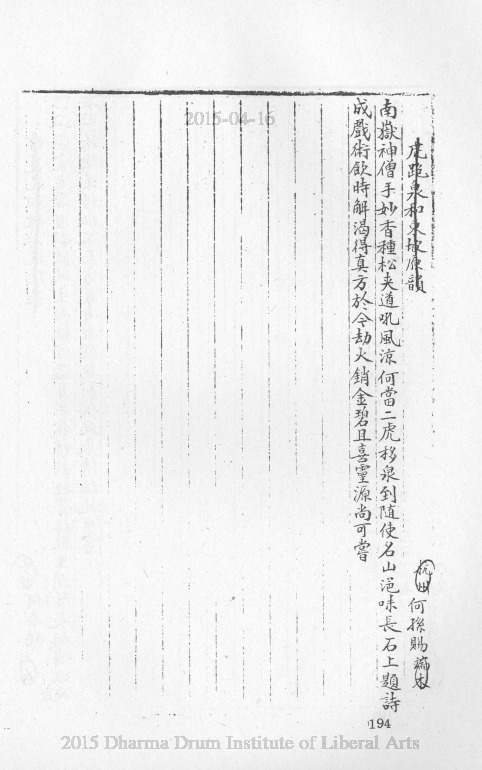 虎跑泉和東坡原韻
杭州 何孫賜
南嶽神僧手妙香種松夾道吼風涼何當二虎移泉到随使名山浥味長石上題詩
成戲術飲時解渴得真方於今劫火銷金碧且喜靈源尚可嘗
194
2015-04-16
2015 Dharma Drum Institute of Liberal Arts